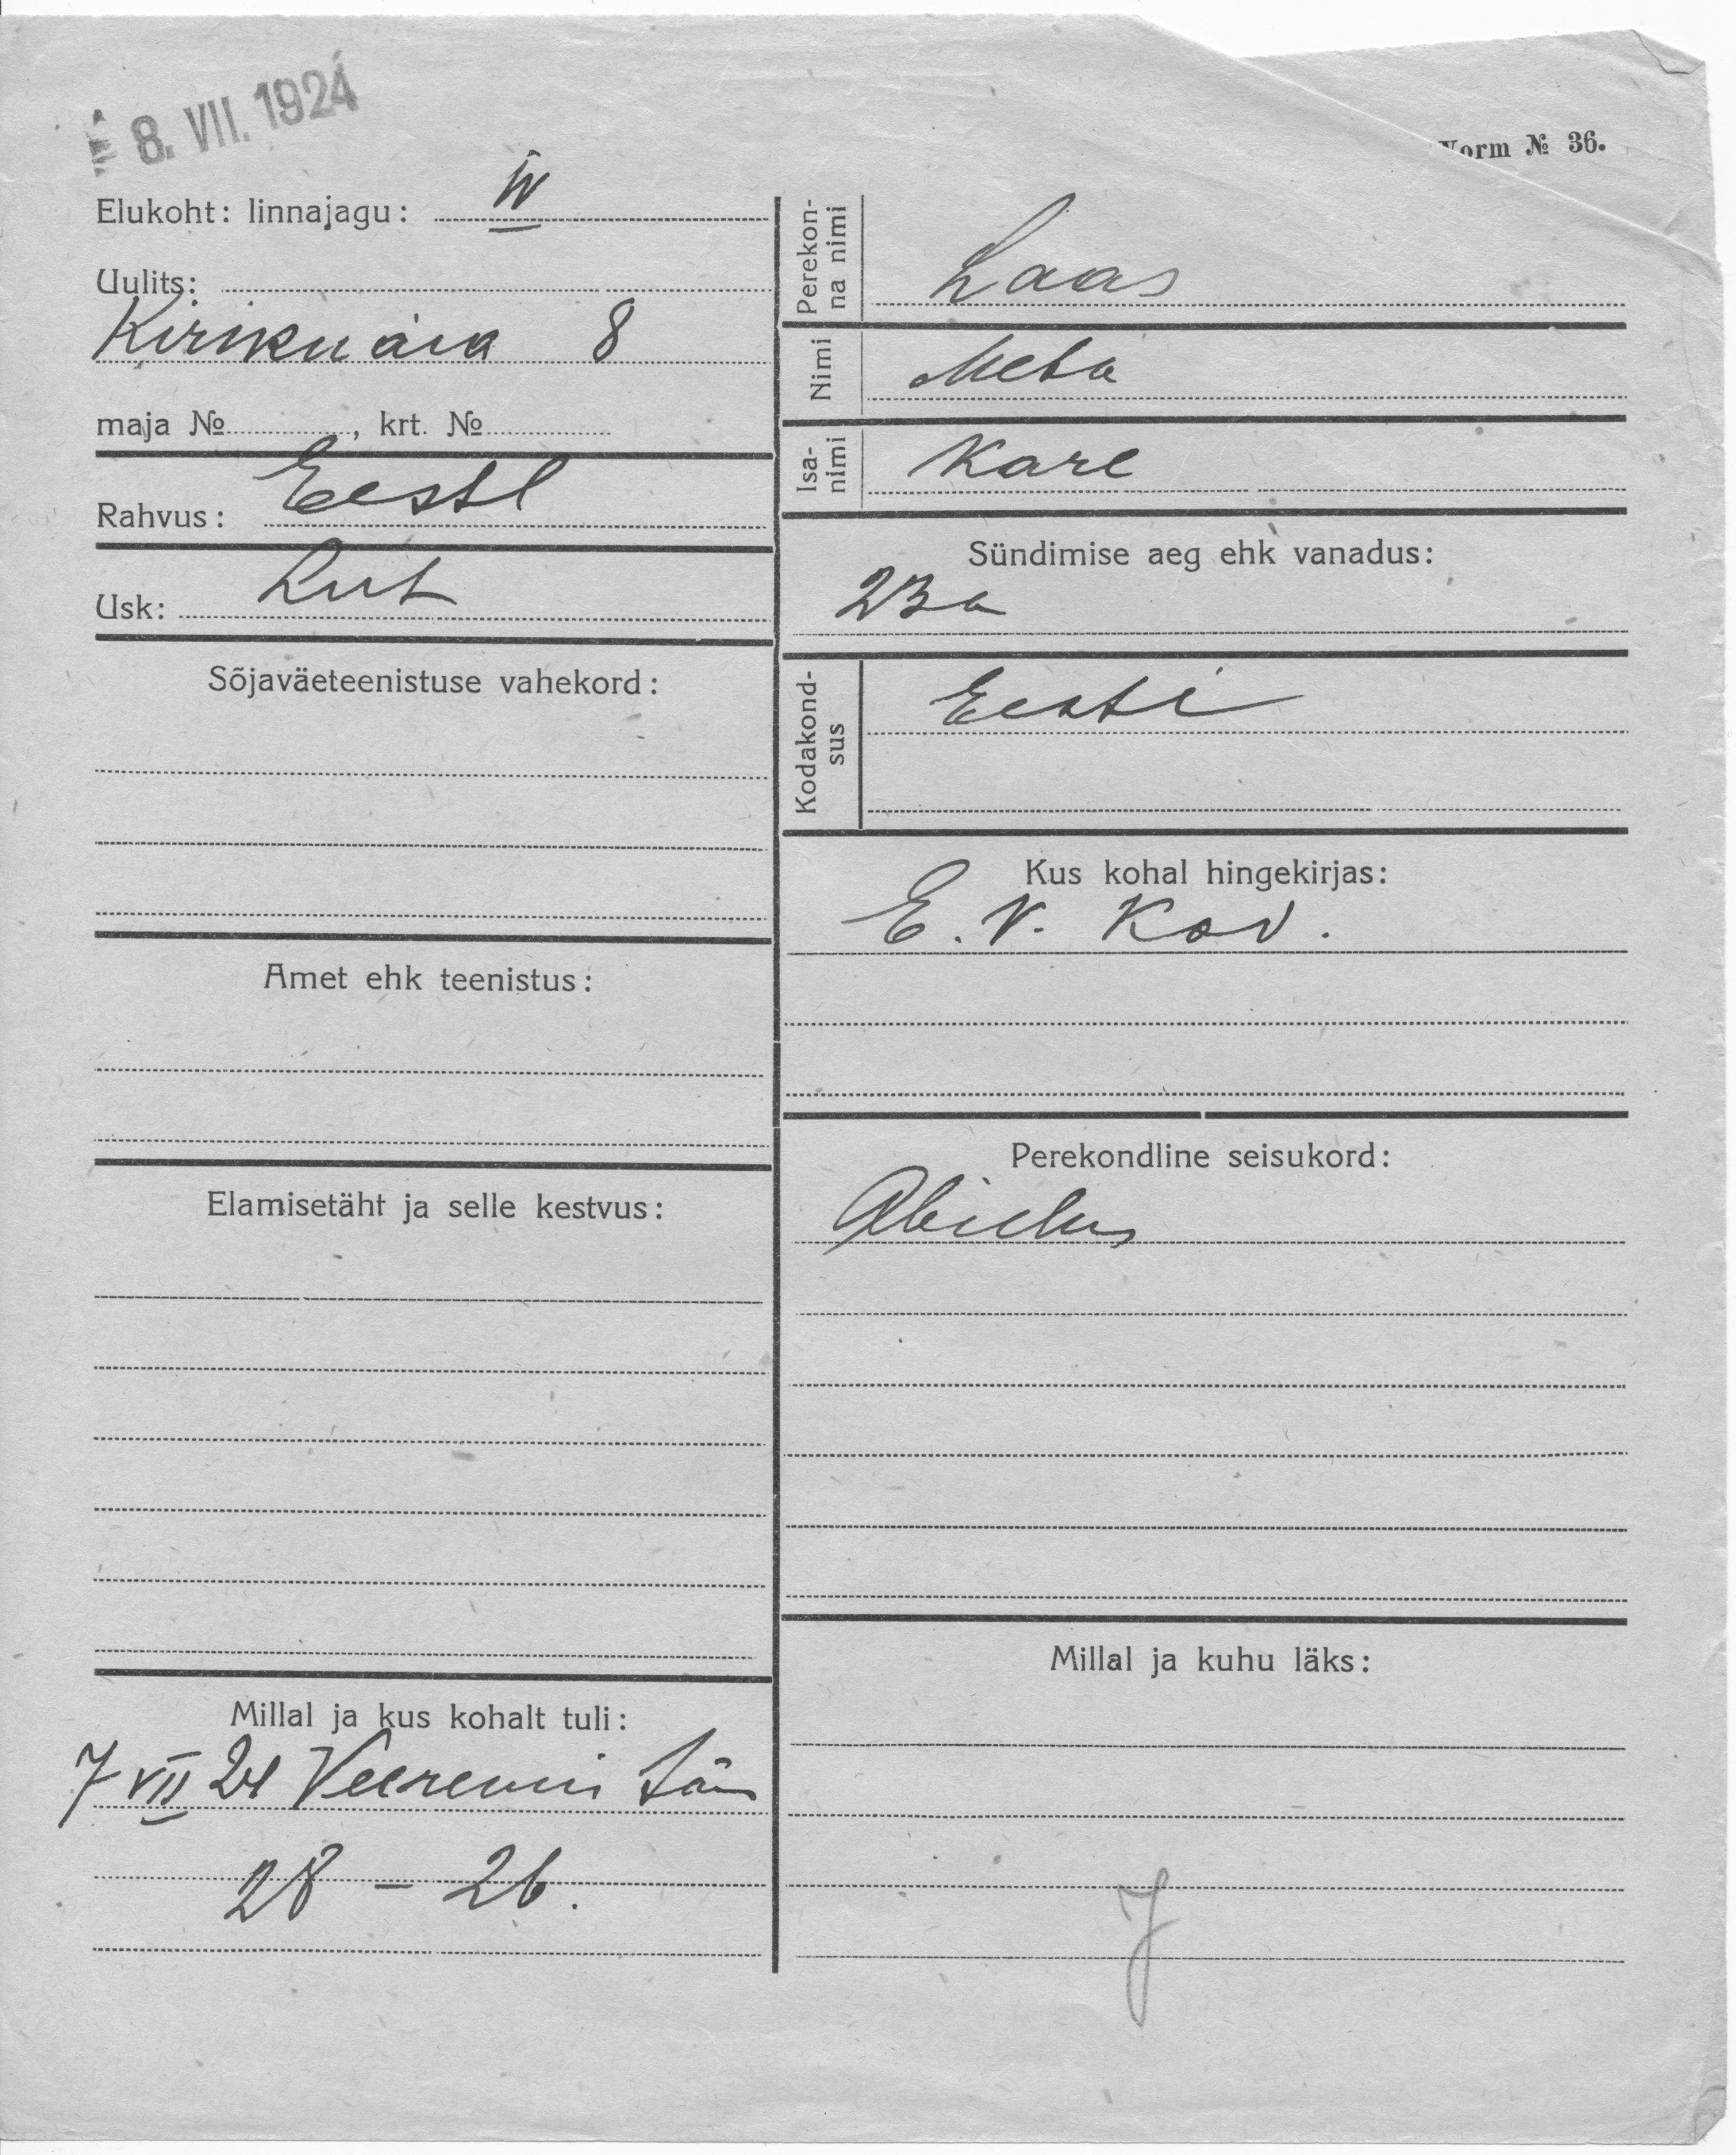 8. VII. 1924
Norm № 36.
Elukoht: linnajagu: IV
Uulits:
8
maja №, krt. №
Rahvus: Eesti
Usk: Lut
Sõjaväeteenistuse vahekord:
Amet ehk teenistus:
Elamisetäht ja selle kestvus:
Millal ja kus kohalt tuli:
7 VII 24 Veerenni tän
28 – 26.
Perekon-
na nimi
Laas
Nimi Meta
Isa-
nimi
Karl
Sündimise aeg ehk vanadus:
23 a
Kodakond-
sus
Eesti
Kus kohal hingekirjas:
E. V. Kod.
Perekondline seisukord:
Abielus
Millal ja kuhu läks: